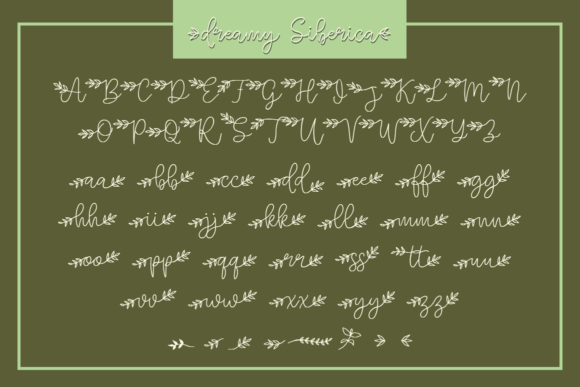 dreamy Siberica
A B C D E F G H I J K L M N
O P Q R S T U V W X Y Z
aa bb cc dd ee ff gg
hh ii jj kk ll mm nn
oo pp qq rr ss tt uu
vv ww xx yy zz